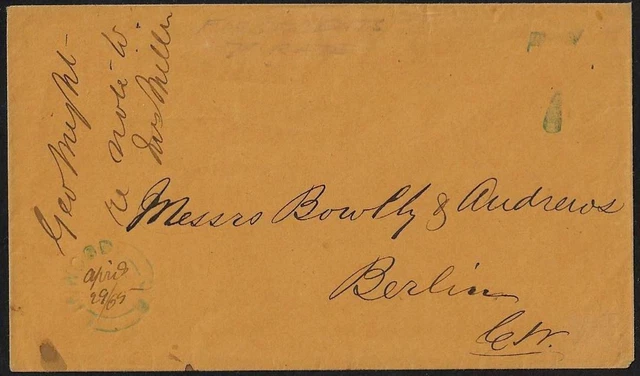 Geo Might
re note to
Mrs Miller
Messrs Bowlly & Andrews
Berlin
C.W.
April
29/65